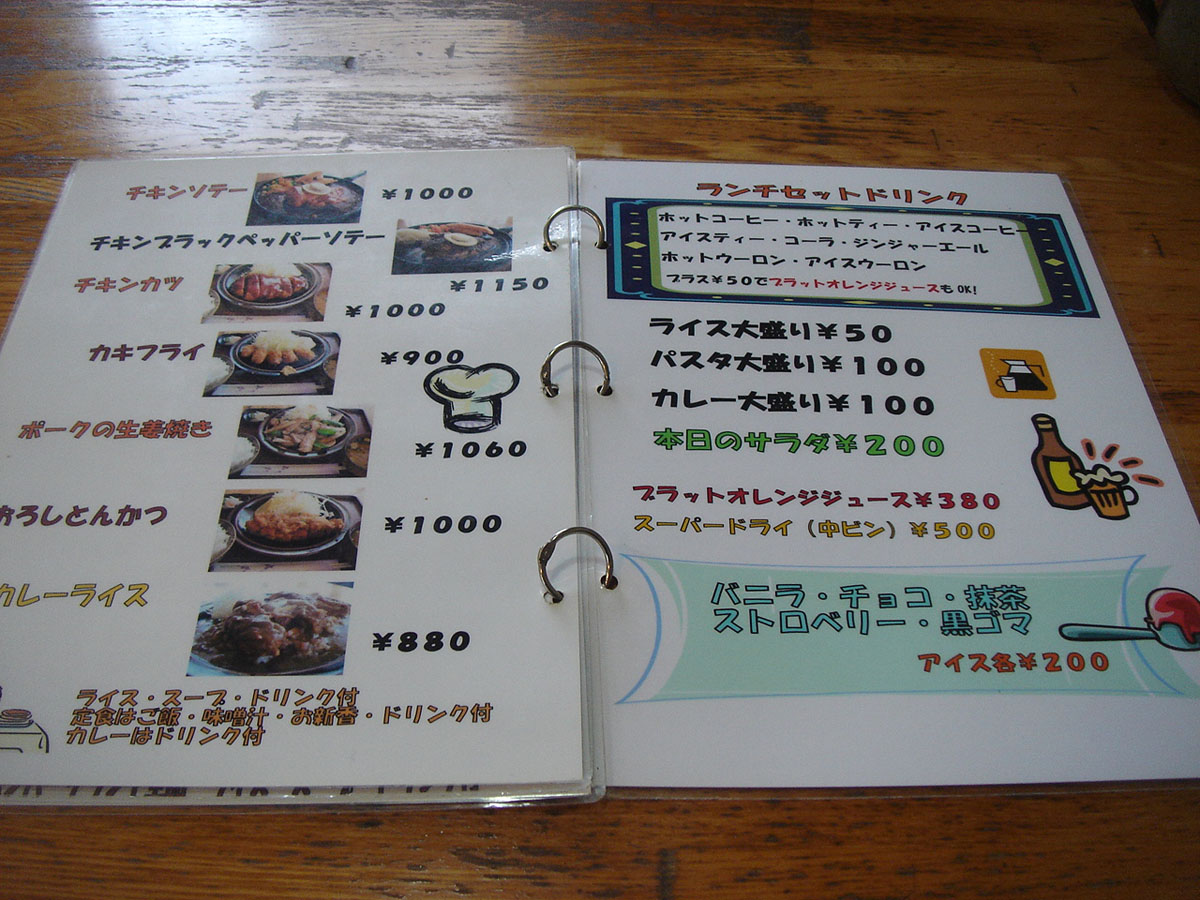 チキンソテー ¥1000
チキンブラックペッパーソテー
¥1150
チキンカツ
¥1000
カキフライ ¥900
ポークの生姜焼き ¥1060
おろしとんかつ ¥1000
カレーライス ¥880
ライス・スープ・ドリンク付
定食はご飯・味噌汁・お新香・ドリンク付
カレーはドリンク付
ランチセットドリンク
ホットコーヒー・ホットティー・アイスコーヒー
アイスティー・コーラ・ジンジャーエール
ホットウーロン・アイスウーロン
プラス¥50でブラットオレンジジュースもOK!
ライス大盛り¥50
パスタ大盛り¥100
カレー大盛り¥100
本日のサラダ¥200
ブラットオレンジジュース¥380
スーパードライ(中ビン)¥500
バニラ・チョコ・抹茶
ストロベリー・黒ゴマ
アイス各¥200